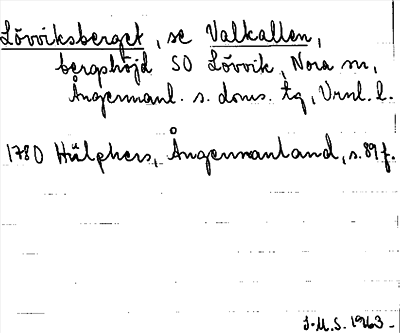 Lövviksberget, se Valkallen,
bergshöjd SO Lövvik, Nora sn,
Ångermanl. s. doms. tg, Vrnl. l.
1780 Hülphers, Ångermanland, s. 89 f.
J.M.S. 1963.